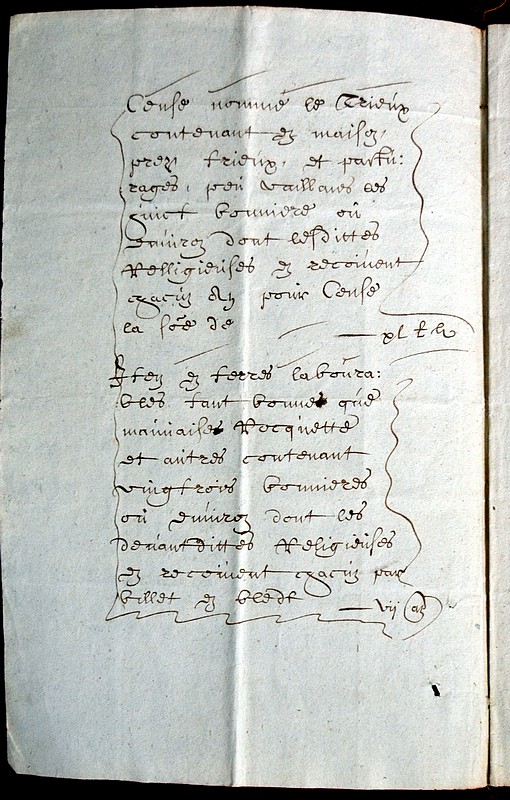 Cense nommé le Trieux
contenant en maison,
prez, trieux, et partu:
rages, peu vaillans les
huict bonniere ou
environ dont lesdittes
Relligieuses en recoivent
chacun an pour Cense
la soe de xl
Item en terres laboura:
bles tant bonnes que
mauvaises Rocquette
et autres contenant
vingtrois bonnieres
ou environ dont les
devantdittes Religieuses
en recoivent chacun par
billet en bledt vij